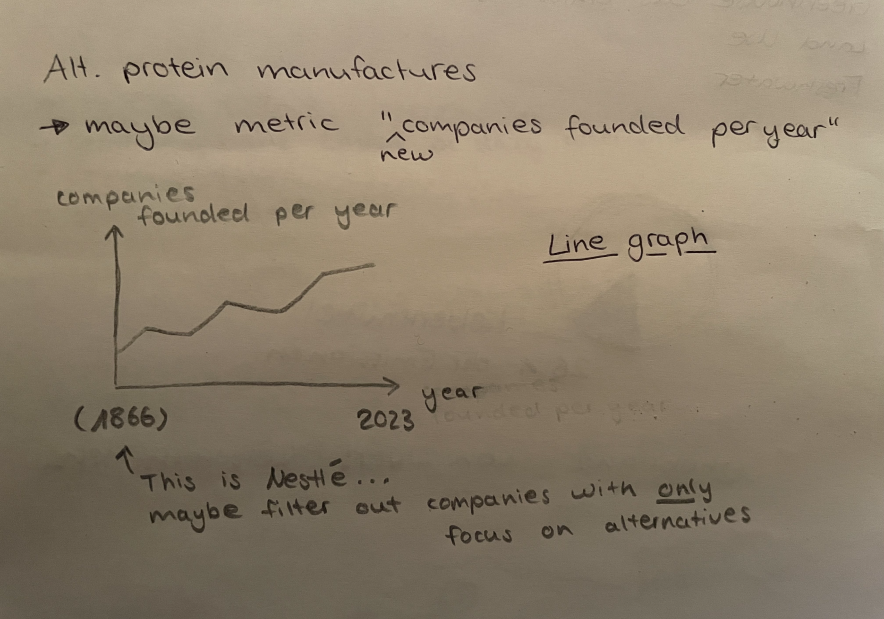 Alt. protein manufactures
→ maybe metric "companies founded per year"
new
companies
founded per year
Line graph
year
(1866)
2023
↑ This is Nestlé...
maybe filter out companies with only
focus on alternatives